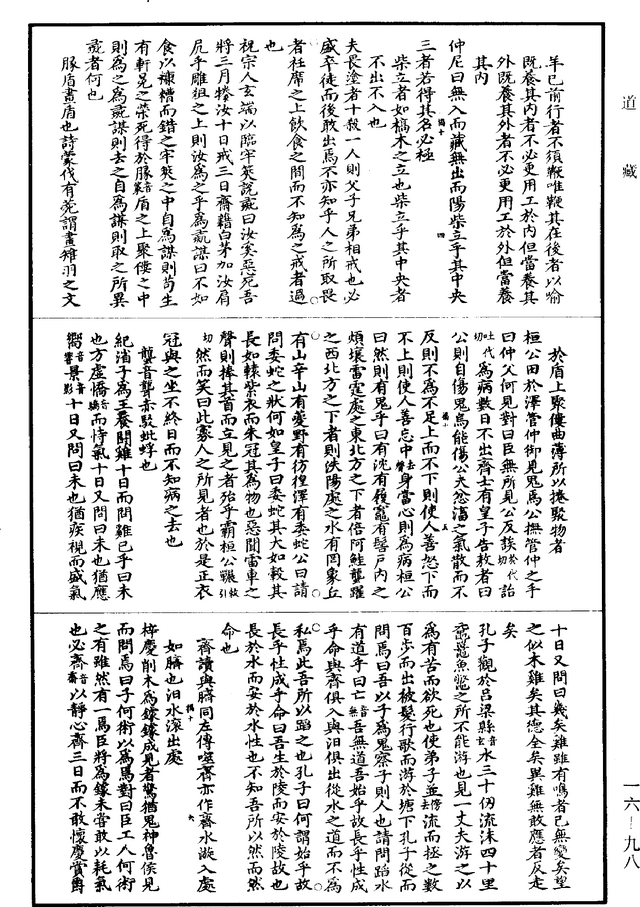 道藏
羊已前行者不須鞭唯鞭其在後者以喻
既養其內者不必更用工於內但當養其
外既養其外者不必更用工於外但當養
其內
仲尼曰無入而藏無出而陽柴立乎其中央
三者若得其名必極
柴立者如槁木之立也柴立乎其中央者
不出不入也
夫畏塗者十殺一人則父子兄弟相戒也必
盛卒徒而後敢出焉不亦知乎人之所取畏
者衽席之上飲食之間而不知為之戒者過
祝宗人玄端以臨牢筴說彘曰汝奚惡死吾
將三月㹖汝十日戒三日齊藉白茅加汝肩
尻乎雕俎之上則汝為之乎為彘謀曰不如
食以糠糟而錯之牢筴之中自為謀則苟生
有軒冕之榮死得於腞盾之上聚僂之中
則為之為彘謀則去之自為謀則取之所異
彘者何也
腞盾畫盾也詩蒙伐有苑謂畫雉羽之文
於盾上聚僂曲薄所以捲聚物者
桓公田於澤管仲御見鬼焉公撫管仲之手
曰仲父何見對曰臣無所見公反誒於代詒
吐代切為病數日不出齊士有皇子告敖者曰
公則自傷鬼烏能傷公夫忿滀之氣散而不
反則不為不足上而不下則使人善怒下而
不上則使人善忘中去聲身當心則為病桓公
曰然則有鬼乎曰有沈有履竈有髻戶內之
煩壤雷霆處之東北方之下者倍阿鮭蠪躍
之西北方之下者則泆陽處之水有罔象丘
有峷山有夔野有彷徨澤有委蛇公曰請
問委蛇之狀何如皇子曰委蛇其大如轂其
長如轅紫衣而朱冠其為物也惡聞雷車之
聲則捧其首而立見之者殆乎霸桓公囅敕引
切然而笑曰此寡人之所見者也於是正衣
冠與之坐不終日而不知病之去也
蠪音聾赤駮蚍蜉也
紀渻子為王養鬭雞十日而問雞已乎曰未
也方虛憍音驕而恃氣十日又問曰未也猶應
嚮音響景音影十日又問曰未也猶疾視而盛氣
十日又問曰幾矣雞雖有鳴者已無變矣望
之似木雞矣其德全矣異雞無敢應者反走
矣
孔子觀於呂梁縣音玄水三十仞流沫四十里
黿鼉魚鼈之所不能游也見一丈夫游之以
為有苦而欲死也使弟子並去聲流而拯之數
百步而出被髮行歌而游於塘下孔子從而
問焉曰吾以子為鬼察子則人也請問蹈水
有道乎曰亡音無吾無道吾始乎故長乎性成
乎命與齊俱入與汩俱出從水之道而不為
私焉此吾所以蹈之也孔子曰何謂始乎故
長乎性成乎命曰吾生於陵而安於陵故也
長於水而安於水性也不知吾所以然而然
命也
齊讀與臍同左傳噬齊亦作齊水漩入處
如臍也汩水滾出處
梓慶削木為鐻鐻成見者驚猶鬼神魯侯見
而問焉曰子何術以為焉對曰臣工人何術
之有雖然有一焉臣將為鐻未嘗敢以耗氣
也必齊音齋以靜心齊三日而不敢懷慶賞爵
一六—九八